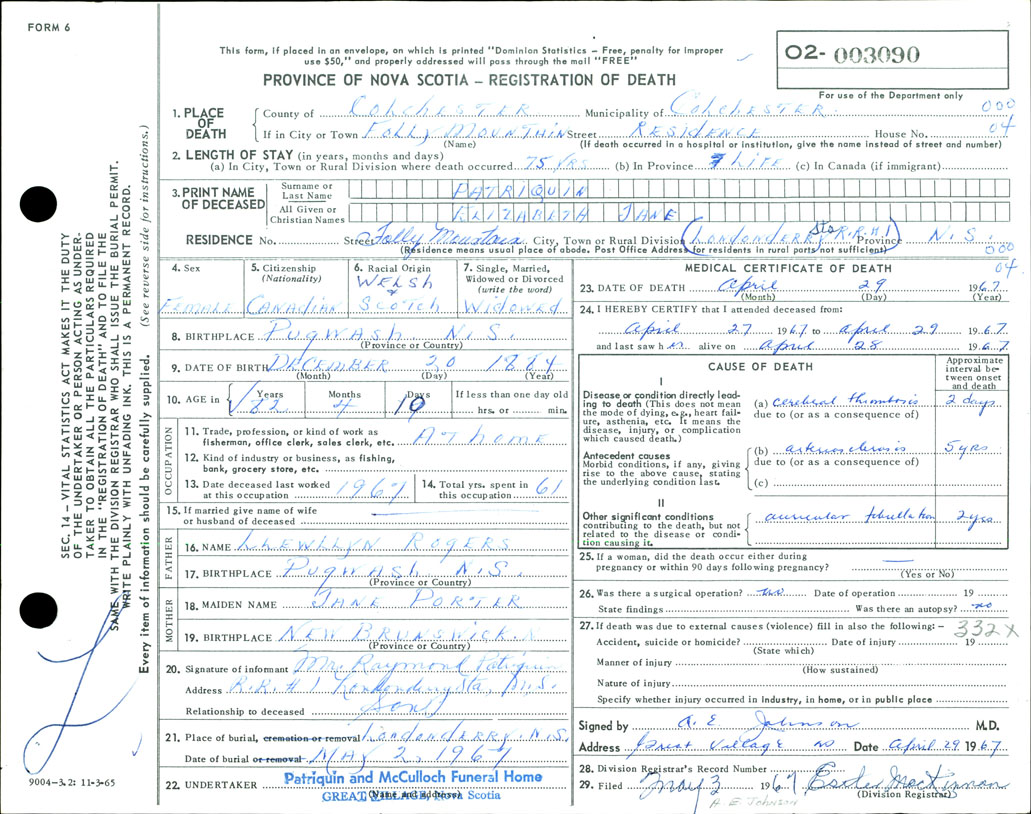 FORM 6
This form, if placed in an envelope, on which is printed "Dominion Statistics – Free, penalty for improper
use $50," and properly addressed will pass through the mail "FREE"
O2- 003090
For use of the Department only
PROVINCE OF NOVA SCOTIA – REGISTRATION OF DEATH
1. PLACE OF DEATH
County of COLCHESTER Municipality of COLCHESTER 000
If in City or Town FOLLY MOUNTAIN Street RESIDENCE House No. 04
(Name) (If death occurred in a hospital or institution, give the name instead of street and number)
2. LENGTH OF STAY (in years, months and days)
(a) In City, Town or Rural Division where death occurred 75 YRS (b) In Province LIFE (c) In Canada (if immigrant)
3. PRINT NAME OF DECEASED
Surname or Last Name PATRIQUIN
All Given or Christian Names ELIZABETH JANE
RESIDENCE No. Street Folly Mountain City, Town or Rural Division (LONDONDERRY Sta R.R.#1) Province N.S.
(Residence means usual place of abode. Post Office Address for residents in rural parts not sufficient) 000
04
4. Sex Female
5. Citizenship (Nationality) Canadian
6. Racial Origin WELSH SCOTCH
7. Single, Married, Widowed or Divorced (write the word) WIDOWED
8. BIRTHPLACE PUGWASH N.S.
(Province or Country)
9. DATE OF BIRTH DECEMBER 20 1884
(Month) (Day) (Year)
10. AGE in Years 82 Months 4 Days If less than one day old hrs. or min.
OCCUPATION
11. Trade, profession, or kind of work as fisherman, office clerk, sales clerk, etc. AT HOME
12. Kind of industry or business, as fishing, bank, grocery store, etc.
13. Date deceased last worked at this occupation 1967
14. Total yrs. spent in this occupation 61
15. If married give name of wife or husband of deceased
FATHER
16. NAME LLEWLLYN ROGERS
17. BIRTHPLACE PUGWASH N.S.
(Province or Country)
MOTHER
18. MAIDEN NAME JANE PORTER
19. BIRTHPLACE NEW BRUNSWICK
(Province or Country)
20. Signature of informant Mr. Raymond Patriquin
Address R.R.#1 Londonderry Sta, N.S.
Relationship to deceased Son
21. Place of burial, cremation or removal LONDONDERRY, N.S.
Date of burial or removal MAY 2, 1967
22. UNDERTAKER Patriquin and McCulloch Funeral Home
GREAT VILLAGE, Nova Scotia
(Name and address)
MEDICAL CERTIFICATE OF DEATH
23. DATE OF DEATH April 29 1967
(Month) (Day) (Year)
24. I HEREBY CERTIFY that I attended deceased from:
April 27 1967 to April 29 1967
and last saw her alive on April 28 1967
CAUSE OF DEATH
Approximate interval between onset and death
I
Disease or condition directly leading to death (This does not mean the mode of dying, e.g., heart failure, asthenia, etc. It means the disease, injury, or complication which caused death.)
(a) cerebral thrombosis 2 days
due to (or as a consequence of)
Antecedent causes
Morbid conditions, if any, giving rise to the above cause, stating the underlying condition last.
(b) arteriosclerosis 5 yrs
due to (or as a consequence of)
(c)
II
Other significant conditions contributing to the death, but not related to the disease or condition causing it.
auricular fibrillation 2 yrs
25. If a woman, did the death occur either during
pregnancy or within 90 days following pregnancy?
(Yes or No)
26. Was there a surgical operation? no Date of operation 19
State findings Was there an autopsy? no
27. If death was due to external causes (violence) fill in also the following: – 332X
Accident, suicide or homicide? Date of injury 19
(State which)
Manner of injury
(How sustained)
Nature of injury
Specify whether injury occurred in industry, in home, or in public place
Signed by A. E. Johnson M.D.
Address Great Village NS Date April 29 1967
28. Division Registrar's Record Number
29. Filed May 3 1967
(Division Registrar)
A. E. Johnson
SEC. 14 – VITAL STATISTICS ACT MAKES IT THE DUTY
OF THE UNDERTAKER OR PERSON ACTING AS UNDER-
TAKER TO OBTAIN ALL THE PARTICULARS REQUIRED
IN THE "REGISTRATION OF DEATH" AND TO FILE THE
SAME WITH THE DIVISION REGISTRAR WHO SHALL ISSUE THE BURIAL PERMIT.
WRITE PLAINLY WITH UNFADING INK. THIS IS A PERMANENT RECORD.
Every item of information should be carefully supplied. (See reverse side for instructions.)
9004-3.2: 11-3-65